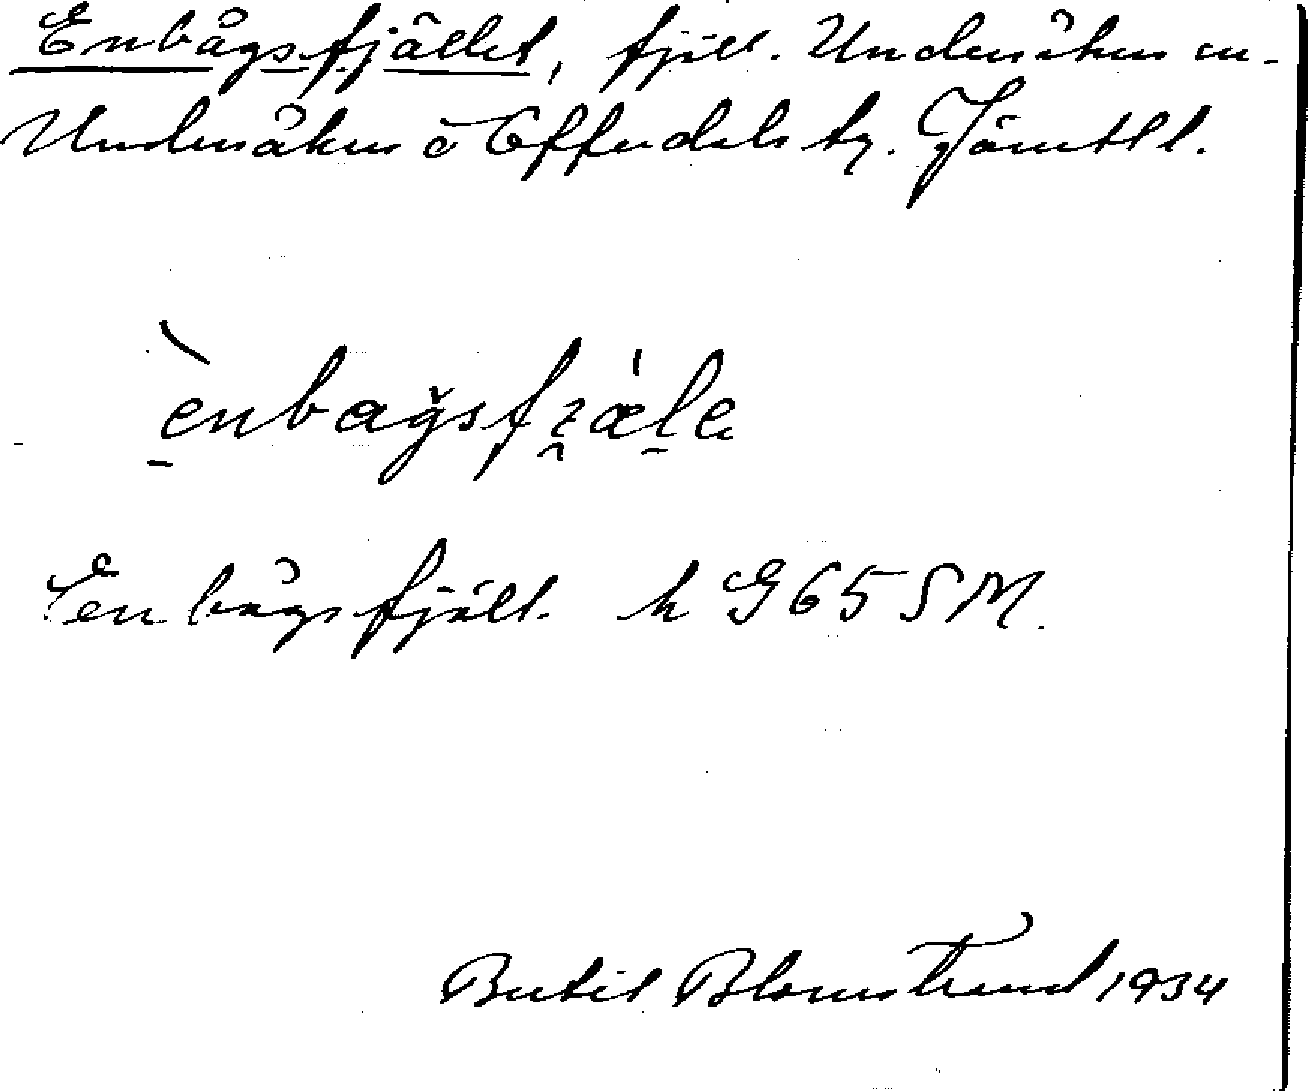 Enbågsfjället, fjäll. Undersåkers sn.
Undersåkers o Offerdals tg. Jämtl l.
ènbag̀sfʒæ̍le
Enbågsfjäll. k G65SM.
Bertil Blomstrand 1934